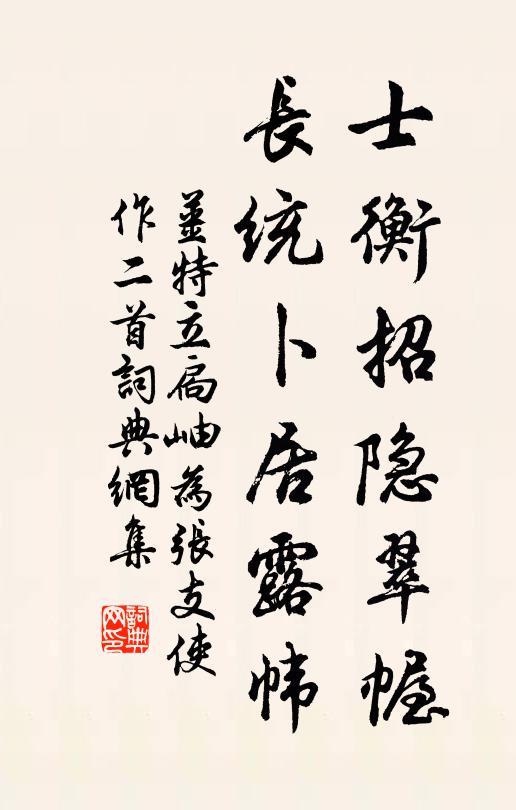 士衡招隐翠幄
長統卜居露帏
薑特立扃岫為張支使
作二首詞典網集
詞典网印